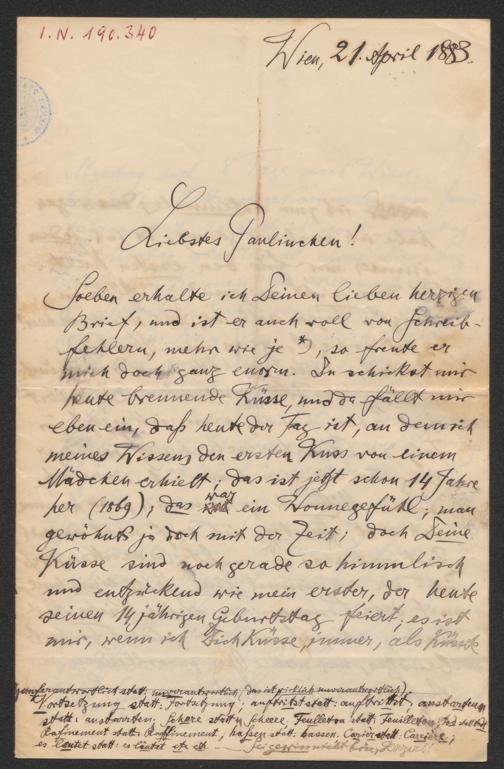 I.N. 190.340
Wien, 21. April 1883.
Liebstes Paulinchen!
Soeben erhalte ich Deinen lieben herzigen
Brief, und ist er auch voll von Schreib-
fehlern, mehr wie je *), so freute er
mich doch ganz enorm. Du schickst mir
heute brennende Küsse, und da fällt mir
eben ein, daß heute der Tag ist, an dem ich
meines Wissens den ersten Kuss von einem
Mädchen erhielt; das ist jetzt schon 14 Jahre
her (1869); das war ein Wonnegefühl; man
gewöhnt's ja doch mit der Zeit; doch Deine
Küsse sind noch gerade so himmlisch
und entzückend wie mein erster, der heute
seinen 14 jährigen Geburtstag feiert; es ist
mir, wenn ich Dich küsse, immer, als küsste
statt: unverantwortlich, das ist wirklich unverantwortlich)
statt: Fortsetzung; auftritst statt: auftrittst,
statt: Schere statt: Scheere. Feulleton statt: Feuilleton;
Rafinement statt: Raffinement, hassen statt: Cariere statt: Carriere;
es lautet statt: es läutet etc etc